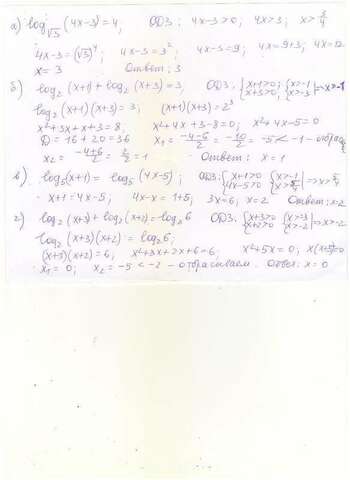 а) log√3 (4x-3)=4, ОДЗ: 4x-3>0; 4x>3; x>3/4
4x-3=(√3)⁴; 4x-3=3²; 4x-3=9; 4x=9+3; 4x=12
x=3 Ответ: 3
б) log₂(x+1)+log₂(x+3)=3; ОДЗ: {x+1>0; x+3>0 {x>-1 x>-3 ⇒x>-1
log₂(x+1)(x+3)=3; (x+1)(x+3)=2³
x²+3x+x+3=8; x²+4x+3-8=0; x²+4x-5=0
D=16+20=36 x₁=(-4-6)/2=-10/2=-5<-1-
x₂=(-4+6)/2=2/2=1 Ответ: x=1
в) log₅(x+1)=log₅(4x-5); ОДЗ: {x+1>0 4x-5>0 {x>-1 x>5/4 ⇒x>5/4
x+1=4x-5; 4x-x=1+5; 3x=6; x=2 Ответ: x=2
г) log₂(x+3)+log₂(x+2)=log₂6 ОДЗ: {x+3>0 x+2>0 {x>-3 x>-2 ⇒x>-2
log₂(x+3)(x+2)=log₂6;
(x+3)(x+2)=6; x²+3x+2x+6=6; x²+5x=0; x(x+5)=0
x₁=0; x₂=-5<-2 - отбрасываем. Ответ: x=0